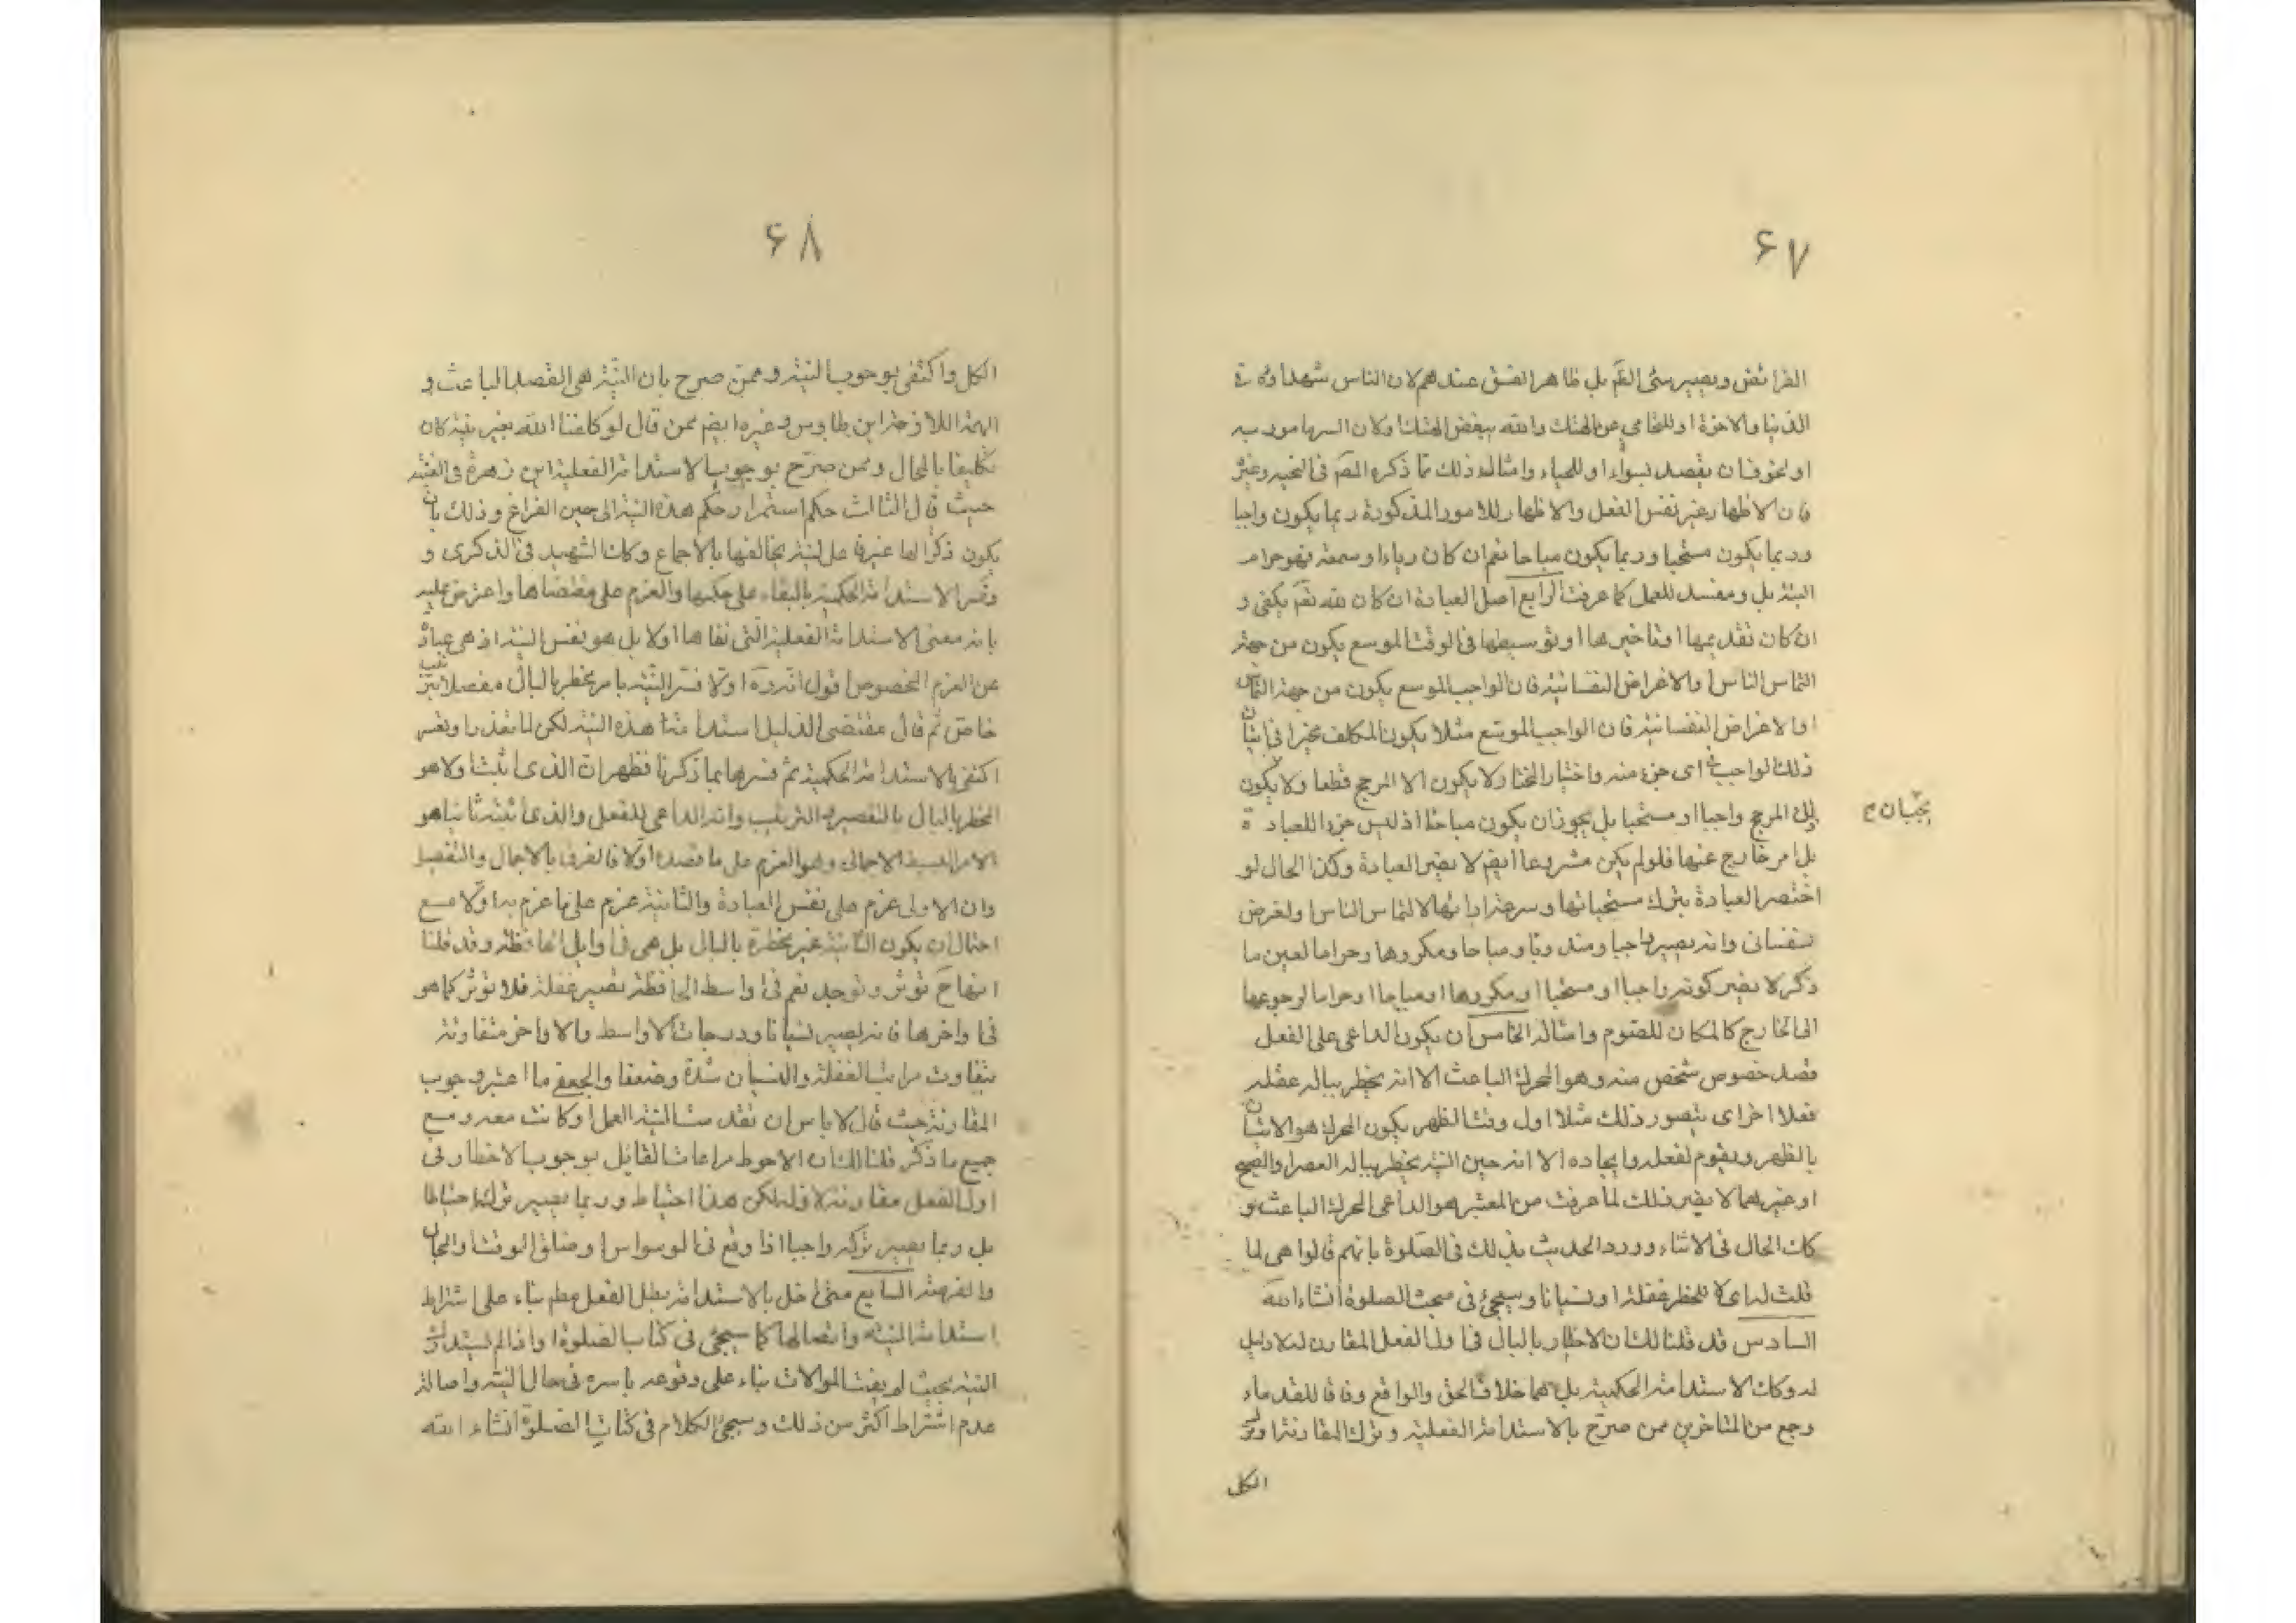 ۶۷
الفرائض ويصير سئ الفم بل ظاهر الفسق عندهم لان الناس شهداؤه في
الدنيا والاخرة او للتحامي عن الهتك والله يبغض الهتك ولان السرها مور به
او لخوف ان يقصد بسوء او للحياء وامثال ذلك مما ذكره المصَ في النخبه وغيره
فان الاظهار غير نفس الفعل والاظهار للامور المذكورة ربما يكون واجبا
وربما يكون مستحبا وربما يكون مباحا نعم ان كان رياء او سمعة فهو حرام
البتة بل ومفسد للعمل كما عرفت الرابع اصل العبادة ان كان لله تعَ يكفي و
ان كان تقديمها او تاخيرها او توسيطها في الوقت الموسع يكون من جهة
التماس الناس او الاغراض النفسانية فان الواجب الموسع يكون من جهة التماس
او الاغراض النفسانية فان الواجب الموسع مثلا يكون المكلف مخيرا في اتيان
ذلك الواجب في اى جزء منه واختيار المختار لا يكون الا المرجح قطعا ولا يكون
ذلك المرجح واجبا او مستحبا بل يجوز ان يكون مباحا اذ ليس جزء اللعبادة
بل امر خارج عنها فلو لم يكن مشروعا ايضم لا يضر العبادة وكذا الحال لو
اختصر العبادة بترك مستحباتها وسرعة ادائها لالتماس الناس او لغرض
نفساني وانه يصير واجبا ومندوبا ومباحا ومكروها وحراما لعين ما
ذكر لا يضر كونه واجبا او مستحبا او مكروها او مباحا او حراما لرجوعها
الى الخارج كالمكان للصوم وامثاله الخامس ان يكون الداعى على الفعل
قصد خصوص شخص منه وهو المحرك الباعث الا انه يخطر بباله غفلة
فعلا اخر اى يتصور ذلك مثلا اول وقت الظهر يكون المحرك هو الاتيان
بالظهر ويقوم لفعله وايجاده الا انه حين النية يخطر بباله العصر او الصبح
او غيرهما لا يضر ذلك لما عرفت من المعتبر هو الداعى المحرك الباعث و
كان الحال في الاثناء وورد الحديث بذلك في الصلوة بانهم قالوا هى لما
قلت له اى لا للخطر غفلة او نسيانا وسيجئ في مبحث الصلوة انشاء الله
السادس قد قلنا لك ان الاخطار بالبال في اول الفعل المقارن له لا دليل
له وكان الاستدامة الحكمية بل هما خلاف الحق والواقع وفاقا للقدماء
وجمع من المتاخرين ممن صرّح بالاستدامة الفعلية وترك المقارنة او
الكل
۶۸
الكل واكتفى بوجوب النية وممن صرح بان النية هى القصد الباعث و
ابن طاوس وغيره ايضم ممن قال لو كلفنا الله بغير نية كان
تكليفا بالمحال وممن صرّح بوجوب الاستدامة الفعلية ابن زهرة في الغنية
حيث قال الثالث حكم استمرار حكم هذه النية الى حين الفراغ وذلك بان
يكون ذكرا لها غير فاعل لنية يخالفها بالاجماع وكان الشهيد في الذكرى و
وفسر الاستدامة الحكمية بالبقاء على حكمها والعزم على مقتضاها واعترض عليه
بانه معنى الاستدامة الفعلية التى نفاها اولا بل هو نفس النية اذ هى عبارة
عن العزم المخصوص اقول انه رَه اولا فسر النية بامر يخطر بالبال مفصلا بترتيب
خاص ثم قال مقتضى الدليل استدامة هذه النية لكن لما تعذر او تعسر
اكتفى بالاستدامة الحكمية ثم فسرها بما ذكرنا فظهر ان الذى اثبت اولا هو
المخطر بالبال بالتفصيل والترتيب وانه الداعى للفعل والذى اثبته ثانيا هو
الامر البسيط الاجمالى وهو العزم على ما قصده اولا فالفرق بالاجمال والتفصيل
وان الاولى عزم على نفس العبادة والثانية عزم على ما عزم به اولا مع
احتمال ان يكون الثانية غير مخطرة بالبال بل هى في اوايل الحافظة وقد قلنا
انها حَ تؤثر وتوجد نعم في اواسط الحافظة تصير غفلة فلا تؤثر كما هو
في اواخرها فانه يصير نسيانا ودرجات الاواسط والاواخر متفاوتة
بتفاوت مراتب الغفلة والنسيان شدة وضعفا والجعفى ما اعتبر وجوب
المقارنة حيث قال لا باس ان تقدمت النية العمل او كانت معه ومع
جميع ما ذكر قلنا لك ان الاحوط مراعات القايل بوجوب الاخطار في
اول الفعل مقارنة لاوله لكن هذا احتياط وربما يصير تركه احتياطا
بل وربما يصير تركه واجبا اذا وقع في الوسواس او ضاق الوقت او الحال
والفرصة السابع متى اخل بالاستدامة بطل الفعل بناء على اشتراط
استدامة النية واتصالها كما سيجئ في كتاب الصلوة او اذا لم يستدرك
النية بحيث لم يفت الموالات بناء على وقوعه باسره في حال النية واصالة
عدم اشتراط اكثر من ذلك وسيجئ الكلام في كتاب الصلوة انشاء الله